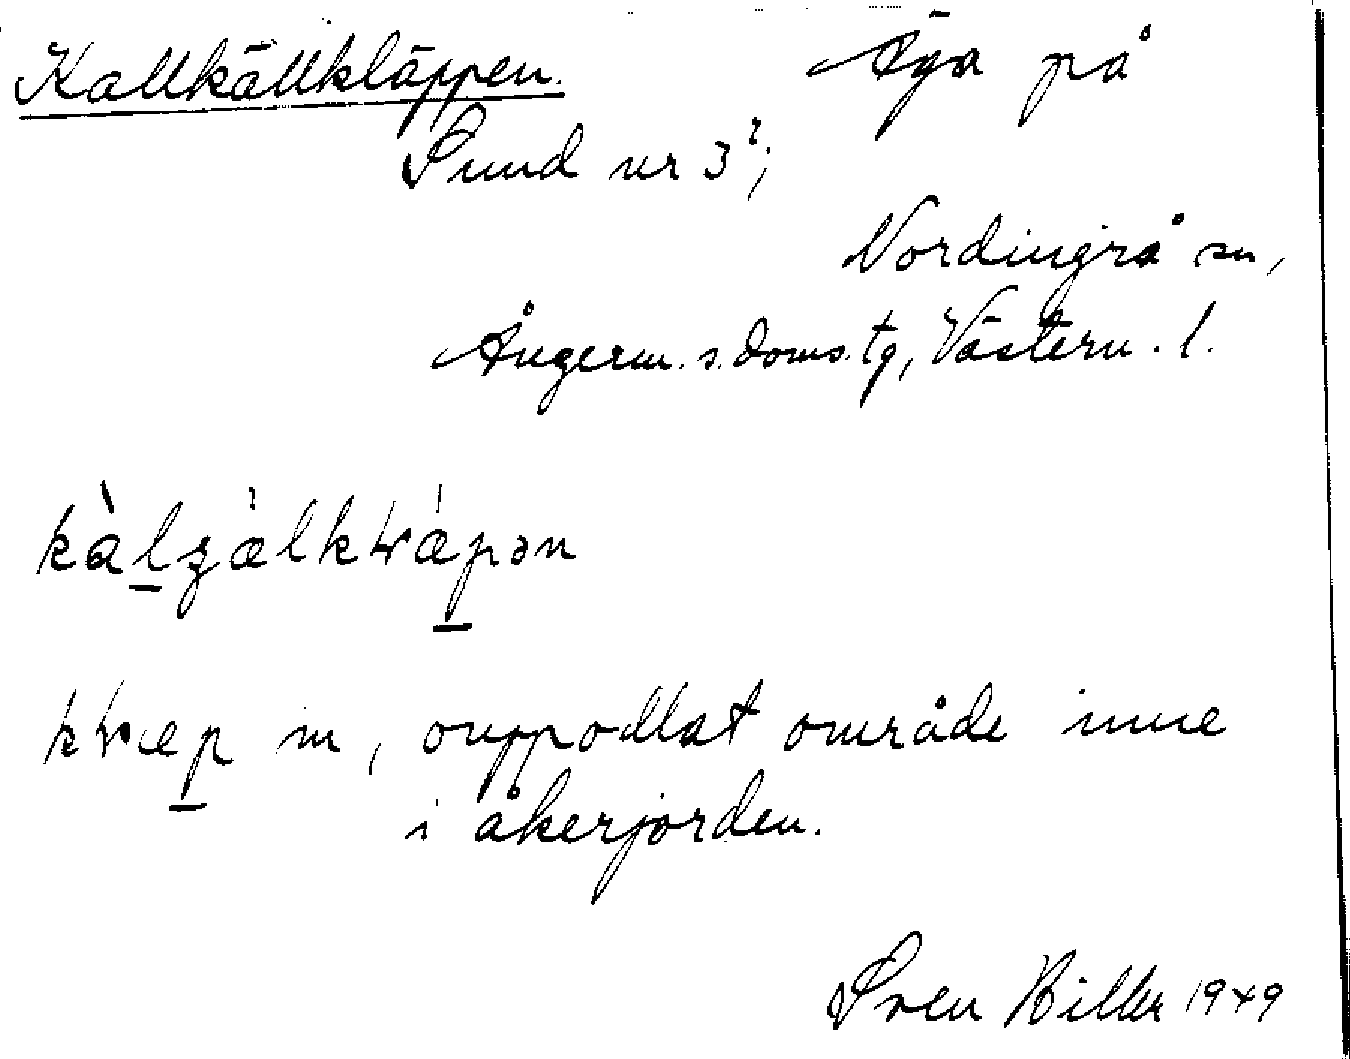 Kallkällkläppen. Äga på
Sund nr 3²;
Nordingrå sn,
Ångerm. s. doms. tg, Västern. l.
ouppodlat område inne
i åkerjorden.
Sven Hiller 1949